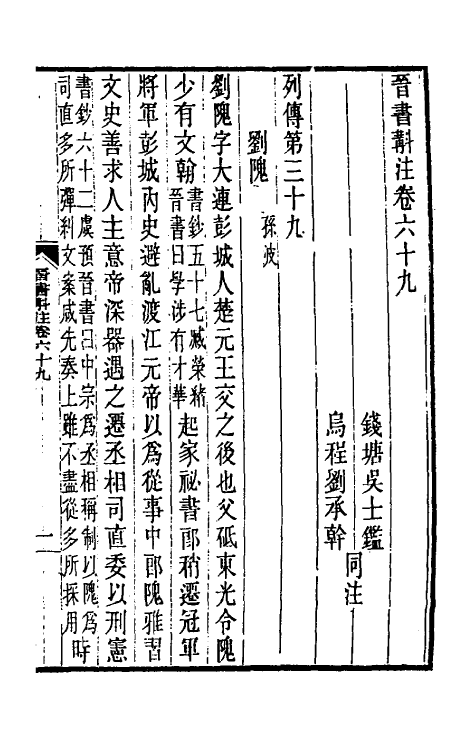 晉書斠注卷六十九
錢塘吳士鑑
烏程劉承幹
同注
列傳第三十九
劉隗 孫波
劉隗字大連彭城人楚元王交之後也父砥東光令隗
少有文翰書鈔五十七臧榮緒晉書曰學涉有才華起家祕書郎稍遷冠軍
將軍彭城內史避亂渡江元帝以為從事中郎隗雅習
文史善求人主意帝深器遇之遷丞相司直委以刑憲
書鈔六十二虞預晉書曰中宗為丞相稱制以隗為
司直多所彈刺文案咸先奏上雖不盡從多所採用時
晉書斠注卷六十九
一